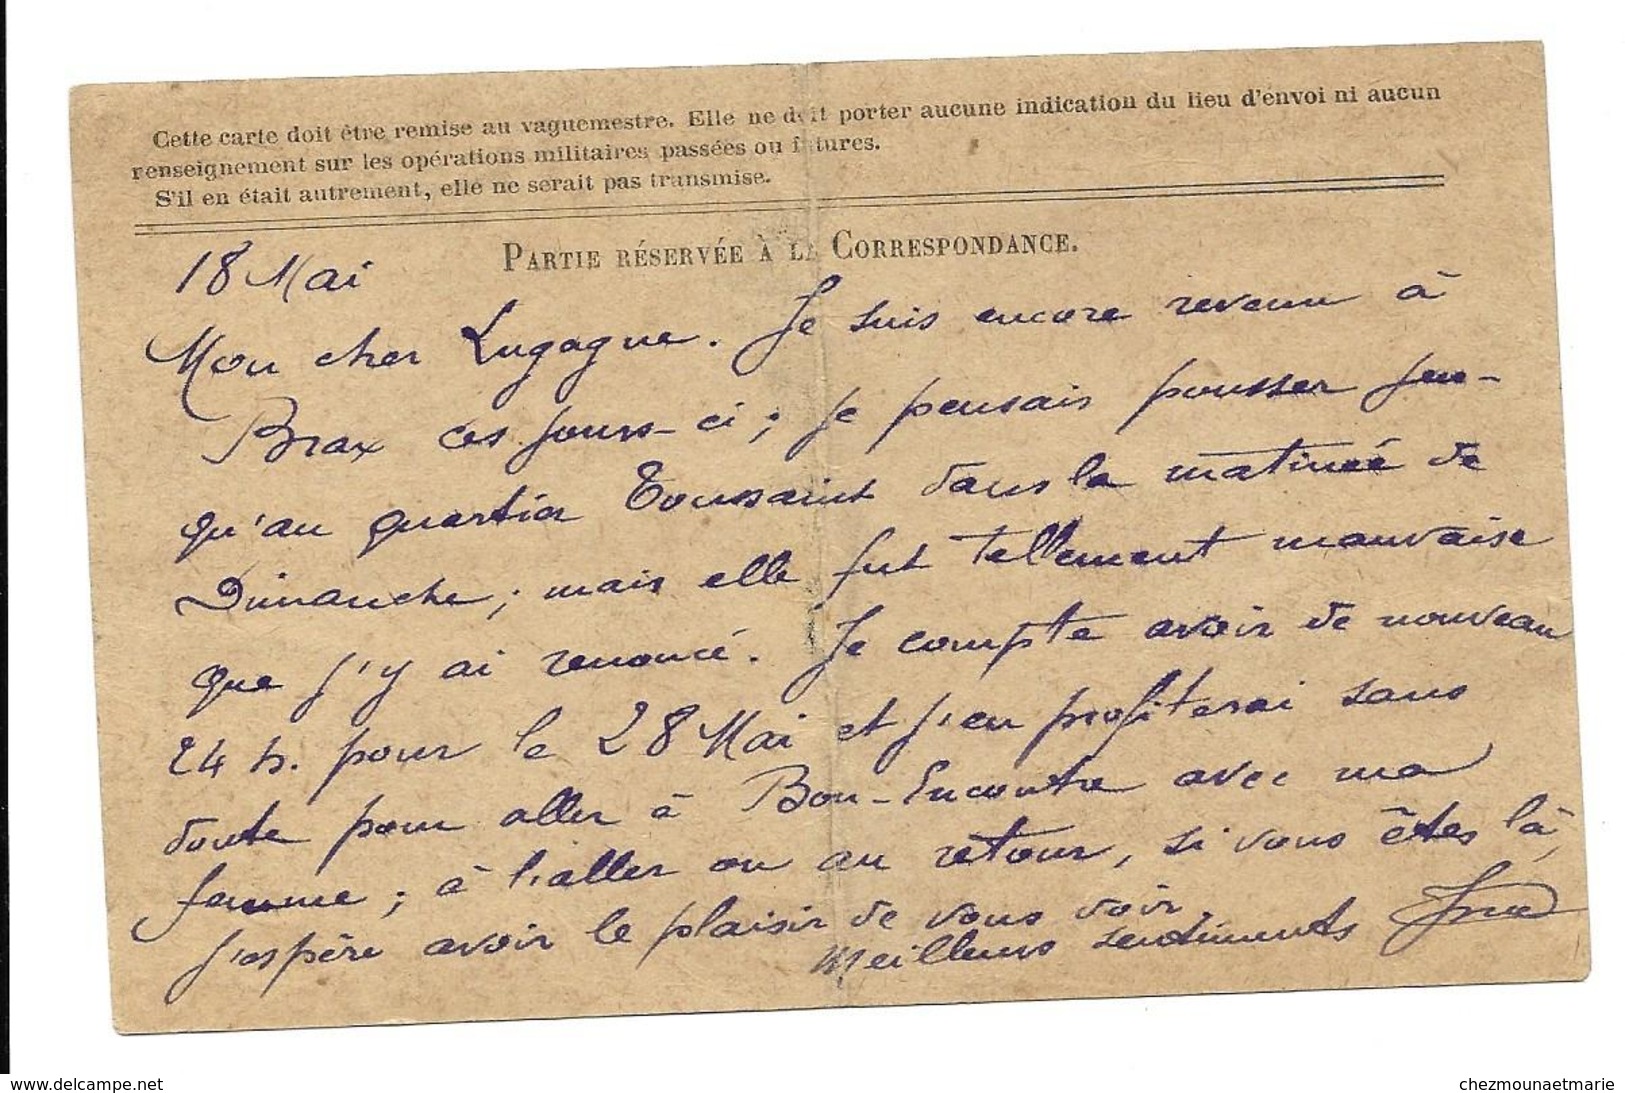 Cette carte doit être remise au vaguemestre. Elle ne doit porter aucune indication du lieu d'envoi ni aucun
renseignement sur les opérations militaires passées ou futures.
S'il en était autrement, elle ne serait pas transmise.
PARTIE RÉSERVÉE À LA CORRESPONDANCE.
18 Mai
Mon cher Lugagne. Je suis encore revenu à
Brax ces jours-ci ; je pensais pousser jus-
qu'au quartier Toussaint dans la matinée de
Dimanche ; mais elle fut tellement mauvaise
que j'y ai renoncé. Je compte avoir de nouveau
24 h. pour le 28 Mai et j'en profiterai sans
doute pour aller à Bon-Encontre avec ma
femme ; à l'aller ou au retour, si vous êtes là,
j'espère avoir le plaisir de vous voir.
Meilleurs sentiments
www.delcampe.net
chezmounaetmarie